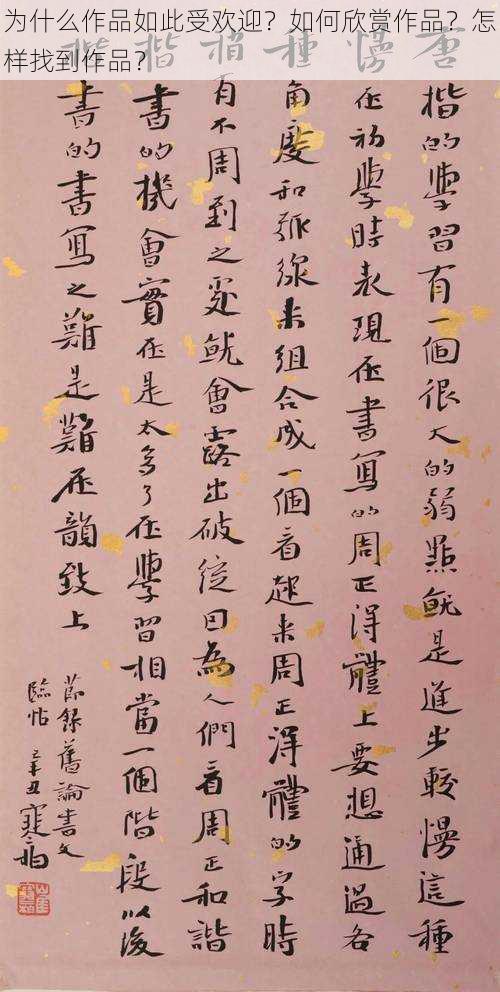 为什么作品如此受欢迎？如何欣赏作品？怎
样找到作品？
唐
楷的學習有一個很大的弱點就是進步較慢這種
慢
在初學時表現在書寫的周正得體上要想通過各
種
角度和弧線來組合成一個看起來周正得體的字時
稍
有不周到之處就會露出破綻因為人們看周正和諧
書的機會實在是太多了在學習相當一個階段以後
楷
書的書寫之難是難在韻致上
節錄舊論書文
臨帖 辛丑